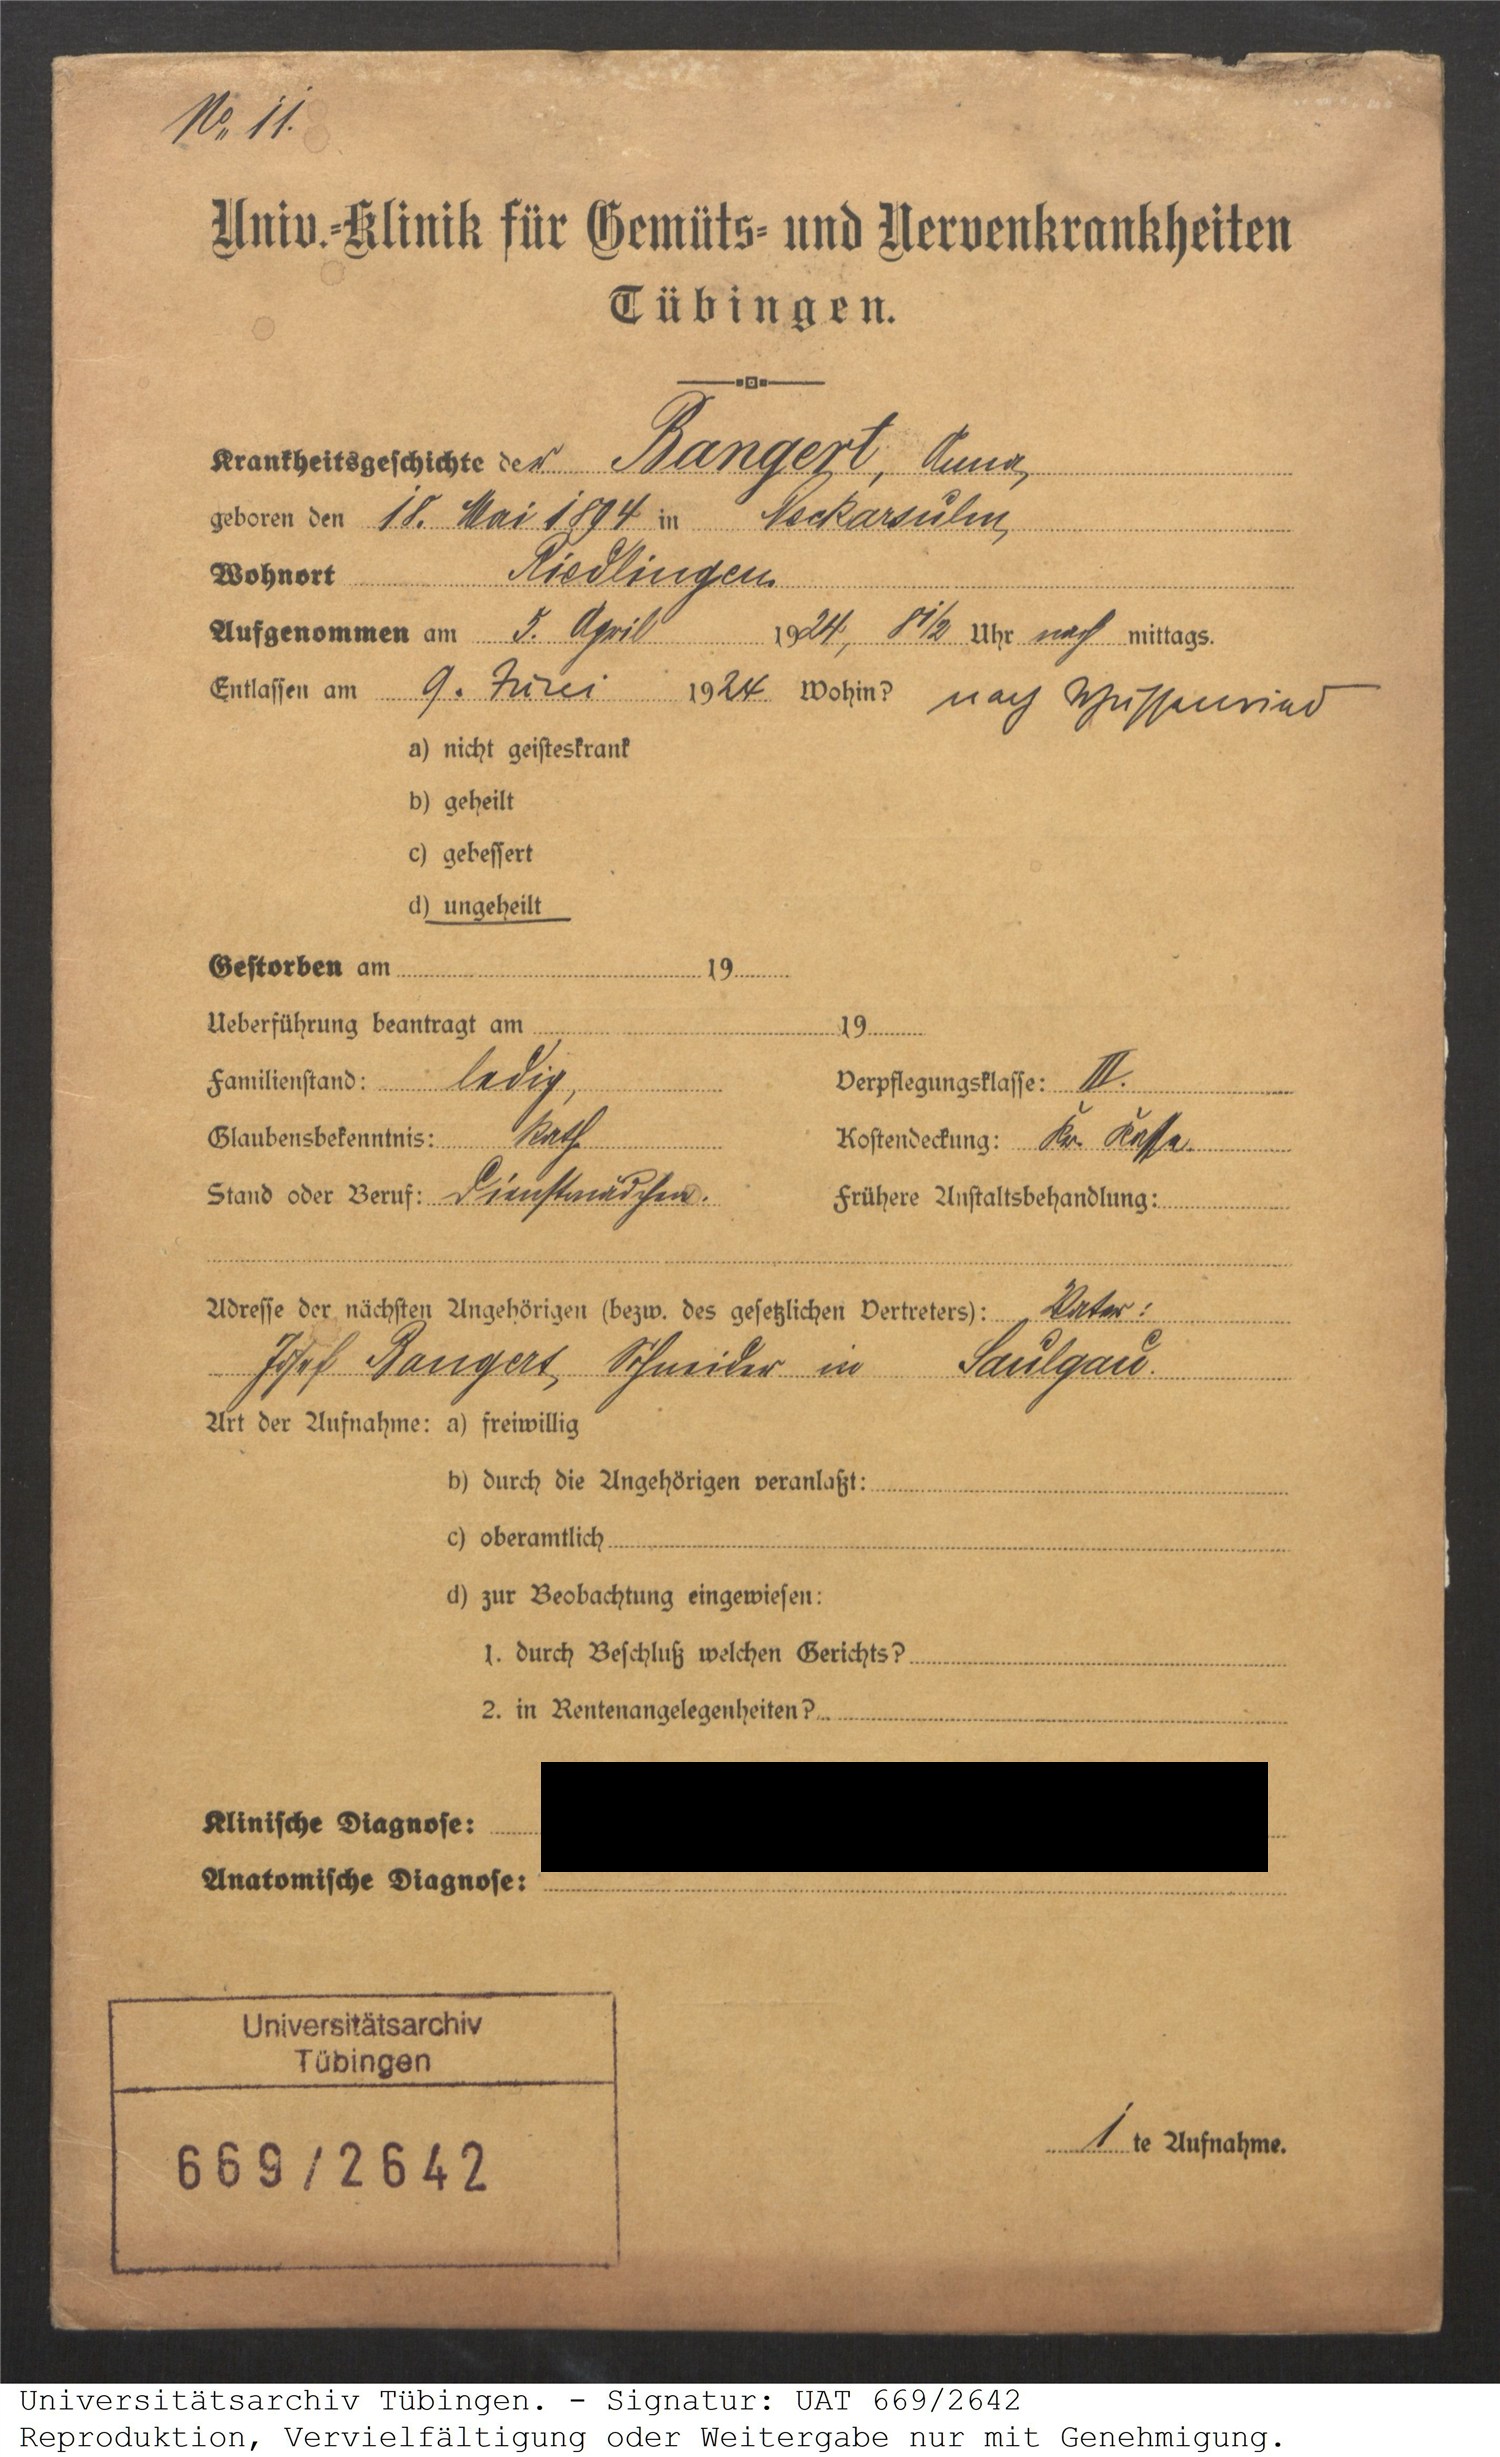 No. 11.
Univ.-Klinik für Gemüts- und Nervenkrankheiten
Tübingen.
Krankheitsgeschichte der Bangert, Anna,
geboren den 18. Mai 1894 in Neckarsulm,
Wohnort Riedlingen.
Aufgenommen am 5. April 1924, 8 1/2 Uhr nach mittags.
Entlassen am 9. Juni 1924 Wohin? nach Schussenried
a) nicht geisteskrank
b) geheilt
c) gebessert
d) ungeheilt
Gestorben am 19
Ueberführung beantragt am 19
Familienstand: ledig, Verpflegungsklasse: III.
Glaubensbekenntnis: kath Kostendeckung: Kr. Kasse.
Stand oder Beruf: Dienstmädchen. Frühere Anstaltsbehandlung:
Adresse der nächsten Angehörigen (bezw. des gesetzlichen Vertreters): Vater:
Josef Bangert, Schneider in Saulgau.
Art der Aufnahme: a) freiwillig
b) durch die Angehörigen veranlaßt:
c) oberamtlich
d) zur Beobachtung eingewiesen:
1. durch Beschluß welchen Gerichts?
2. in Rentenangelegenheiten?
Klinische Diagnose:
Anatomische Diagnose:
Universitätsarchiv
Tübingen
669/2642
1 te Aufnahme.
Universitätsarchiv Tübingen. - Signatur: UAT 669/2642
Reproduktion, Vervielfältigung oder Weitergabe nur mit Genehmigung.